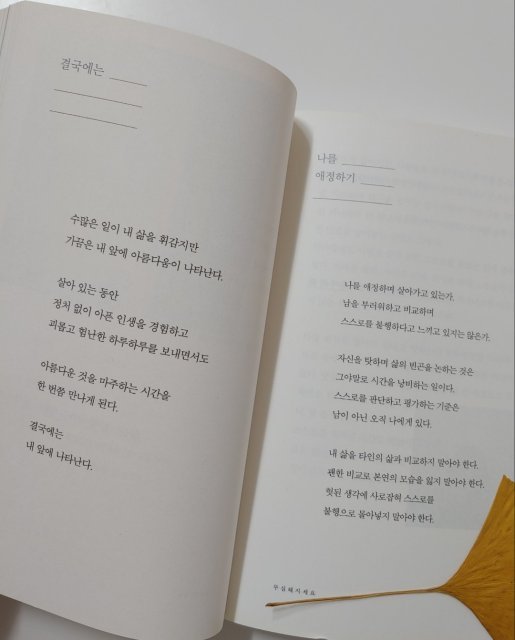 결국에는
수많은 일이 내 삶을 휘감지만
가끔은 내 앞에 아름다움이 나타난다.
살아 있는 동안
정처 없이 아픈 인생을 경험하고
괴롭고 험난한 하루하루를 보내면서도
아름다운 것을 마주하는 시간을
한 번쯤 만나게 된다.
결국에는
내 앞에 나타난다.
나를
애정하기
나를 애정하며 살아가고 있는가.
남을 부러워하고 비교하며
스스로를 불행하다고 느끼고 있지는 않은가.
자신을 탓하며 삶의 빈곤을 논하는 것은
그야말로 시간을 낭비하는 일이다.
스스로를 판단하고 평가하는 기준은
남이 아닌 오직 나에게 있다.
내 삶을 타인의 삶과 비교하지 말아야 한다.
괜한 비교로 본연의 모습을 잃지 말아야 한다.
헛된 생각에 사로잡혀 스스로를
불행으로 몰아넣지 말아야 한다.
무심해지세요